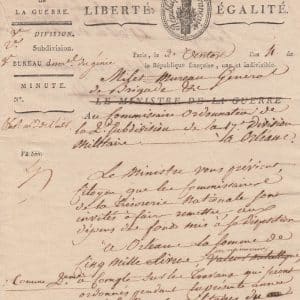 DE LA GUERRE.
LIBERTÉ,
ÉGALITÉ.
DIVISION
Subdivision.
BUREAU
MINUTE.
N.º
Paris, le
la République française, une et indivisible.
Milet Mureau Général
de Brigade
LE MINISTRE DE LA GUERRE
Au Commissaire Ordonnateur de
la 2e Subdivision de la 17e Division
Militaire
à Orléans
Le Ministre vous prévient,
Citoyen, que les Commissaires
de la Trésorerie Nationale sont
invités à faire remettre, des
fonds mis à sa disposition
à Orléans la Somme de
Cinq Mille Livres
à Compte sur les travaux qui seront
ordonnés pendant la présente année